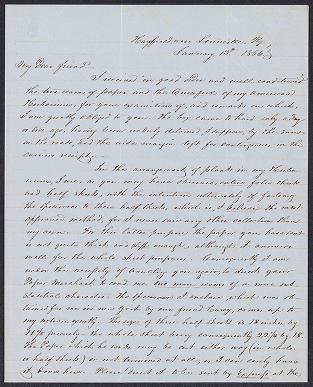 Hayfield near Louisville, Ky.
January 13th 1854.
My Dear friend
I received in good order and well conditioned
the two reams of paper and the Concipii of my American
Herbarium, for your acquisition of, and remarks on which,
I am greatly obliged to you. The box came to hand only a day
or two ago, having been unduly detained I suppose, by the snow
on the road, and the wide margin left for contingencies in the
carriers receipt.
In the arrangement of plants in my Herba-
rium, I use, as you may have observed, entire folio sheets
and half sheets, with the intention ultimately of fastening
the specimens to these half sheets, which is, I believe, the most
approved method, for I never saw any other collection than
my own. For this latter purpose the paper you have sent
is not quite thick and stiff enough, although it answers
well for the whole sheet purposes. Consequently I am
under the necessity of troubling you again, to direct your
Paper Merchant to send me two more reams of a more sub-
stantial character. The specimen I enclose, which was ob-
tained for me in New York by our friend Carey, comes up to
my notions exactly. The size of these half sheets is 18 inches by
11 1/8 precisely, the whole sheets being consequently 22 2/8 by 18.
The Paper which he sends may be cut either way (in whole
or half sheets) or not trimmed at all, as I can easily have
it done here. Please direct it to be sent by Express at the